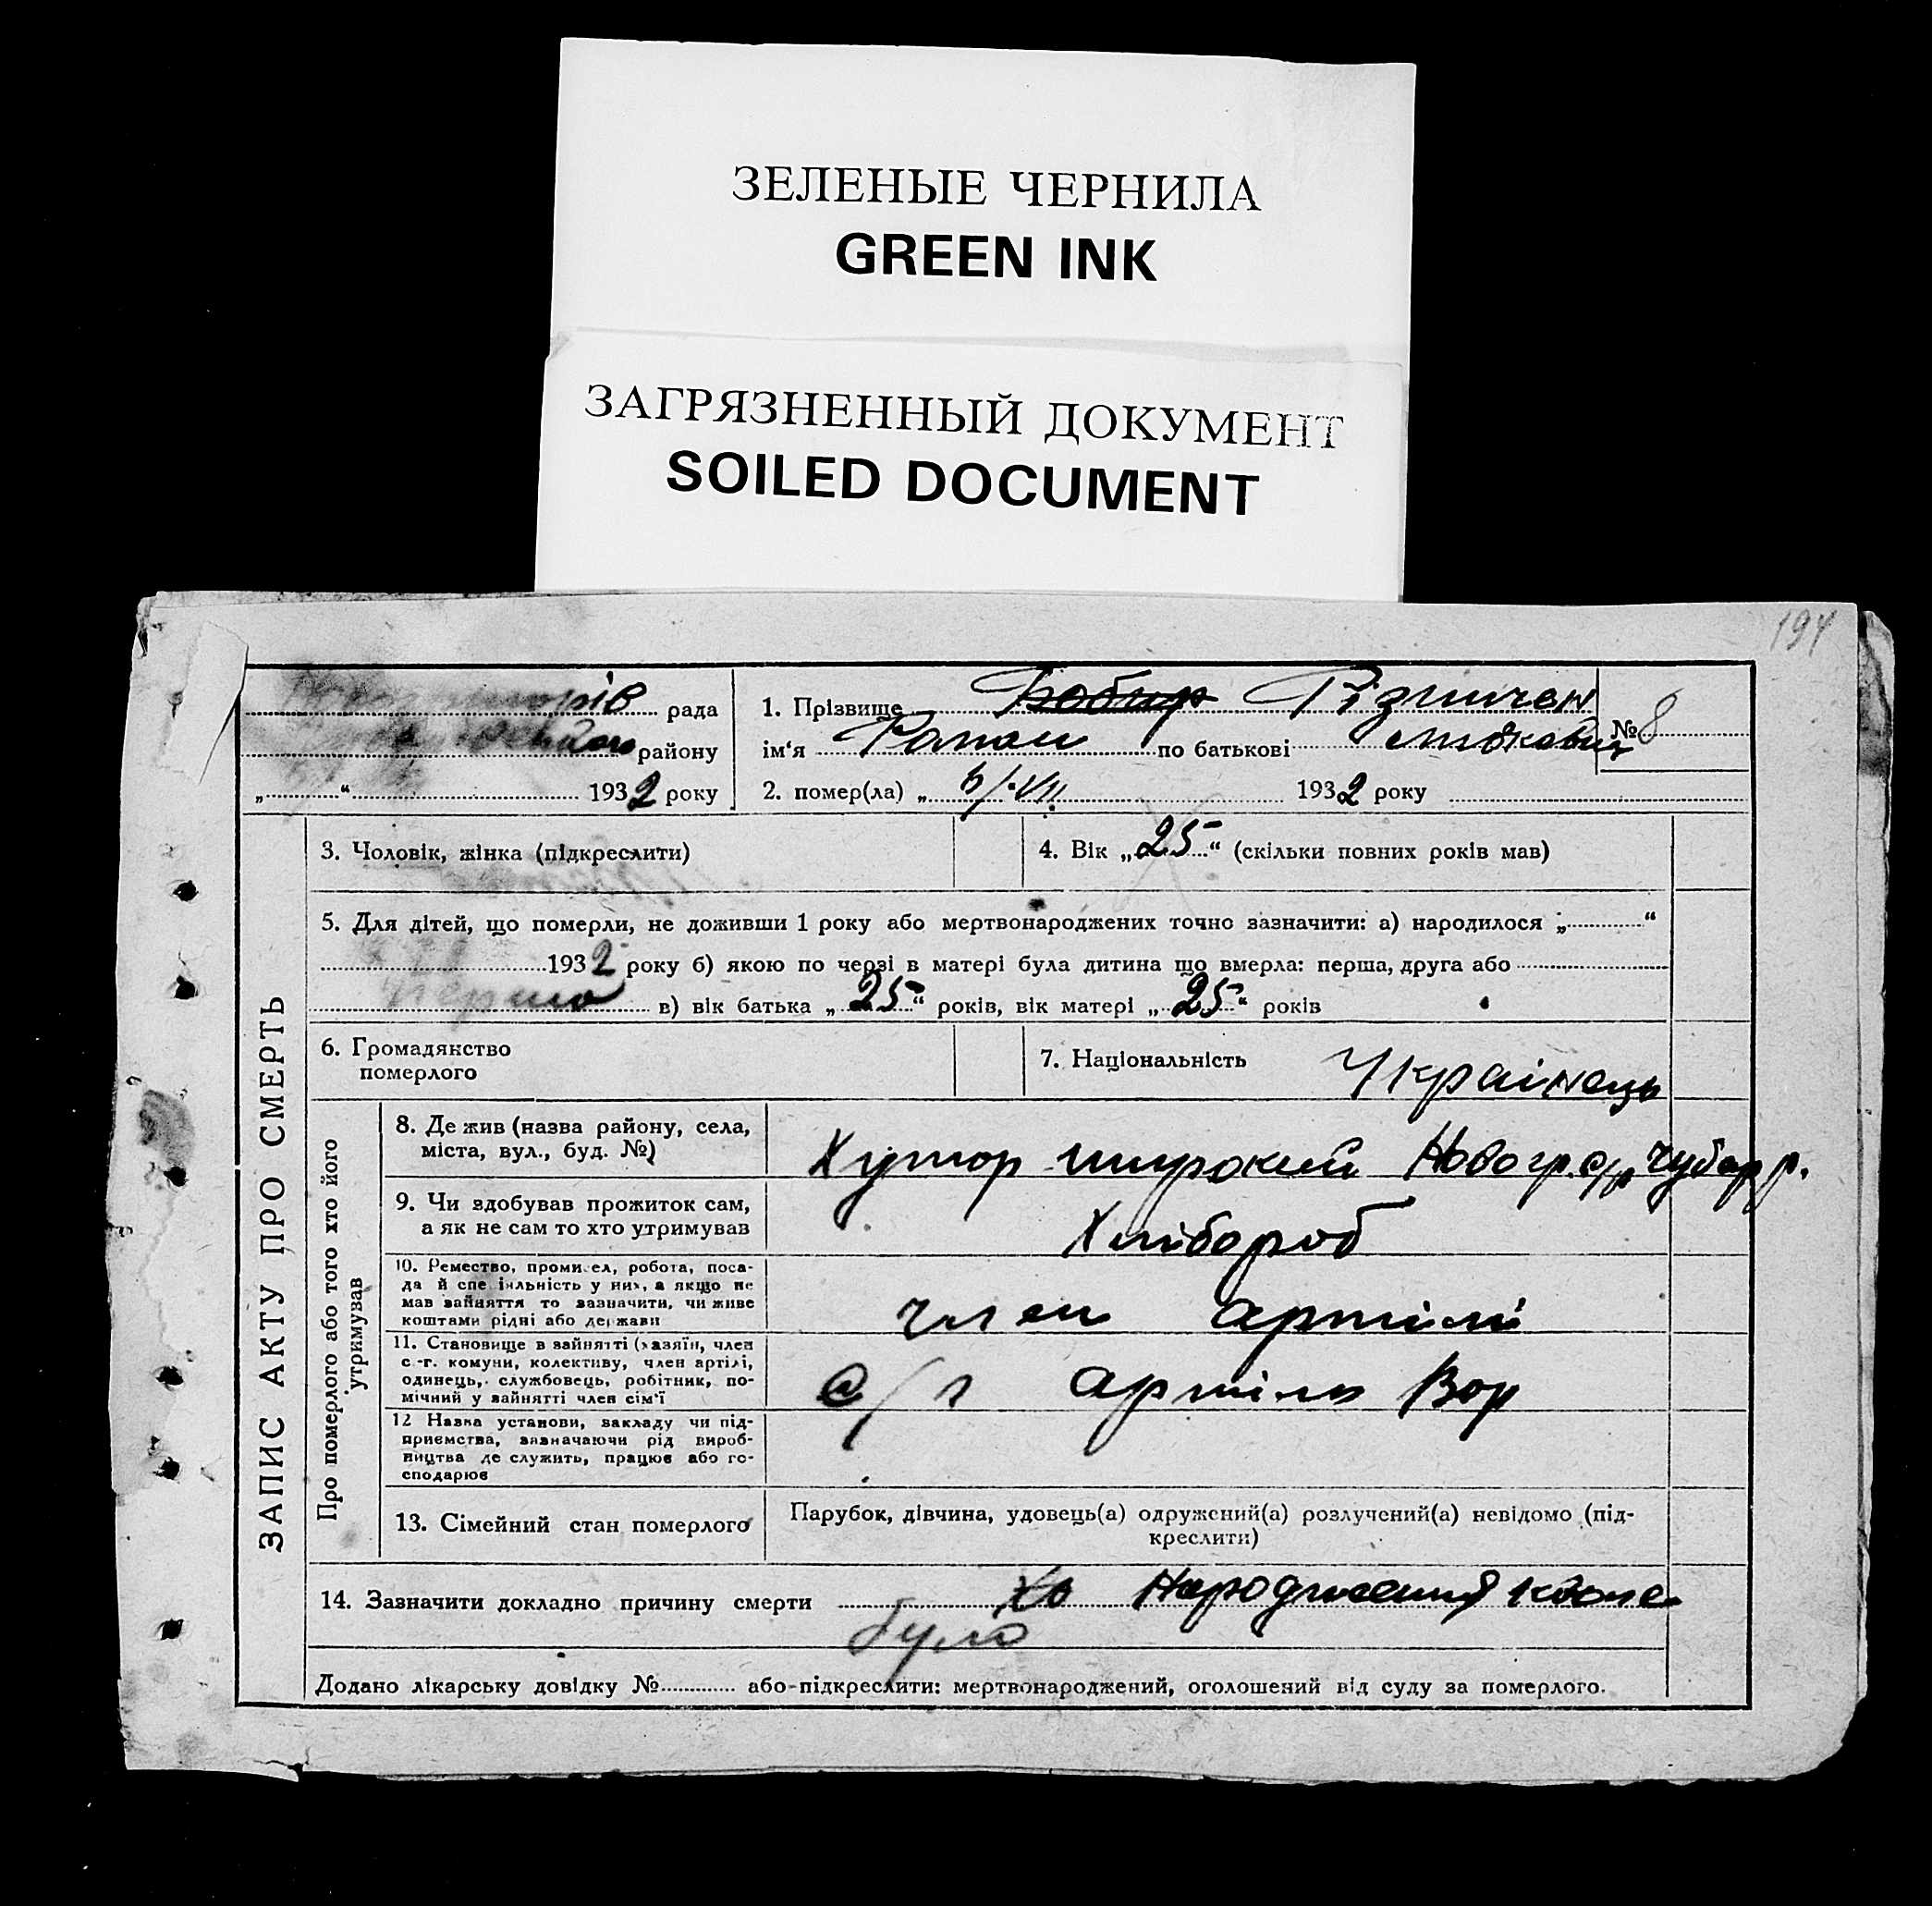 ЗЕЛЕНЫЕ ЧЕРНИЛА
GREEN INK
ЗАГРЯЗНЕННЫЙ ДОКУМЕНТ
SOILED DOCUMENT
194
рада
району
„ “ 1932 року
1. Прізвище Бобир Різничен
ім‘я по батькові
№ 8
2. помер(ла) „ VII 1932 року
ЗАПИС АКТУ ПРО СМЕРТЬ
3. Чоловік, жінка (підкреслити)
4. Вік „25“ (скільки повних років мав)
5. Для дітей, що померли, не доживши 1 року або мертвонароджених точно зазначити: а) народилося „ “
1932 року б) якою по черзі в матері була дитина що вмерла: перша, друга або
перша в) вік батька „25“ років, вік матері „25“ років
6. Громадянство
померлого
7. Національність Украінець
Про померлого або того хто його
утримував
8. Де жив (назва району, села,
міста, вул., буд. №)
Хутор широкий Новогр. с/р Чубар р.
9. Чи здобував прожиток сам,
а як не сам то хто утримував
Хлібороб
10. Ремество, промисел, робота, поса-
да й спеціяльність у них, а якщо не
мав зайняття то зазначити, чи живе
коштами рідні або держави
член артілі
11. Становище в зайнятті (хазяїн, член
с.-г. комуни, колективу, член артілі,
одинець, службовець, робітник, по-
мічний у зайнятті член сім‘ї
с/г артіль Вор
12 Назва установи, закладу чи під-
приємства, зазначаючи рід вироб-
ництва де служить, працює або го-
сподарює
13. Сімейний стан померлого
Парубок, дівчина, удовець(а) одружений(а) розлучений(а) невідомо (під-
креслити)
14. Зазначити докладно причину смерти Народження
було
Додано лікарську довідку № або-підкреслити: мертвонароджений, оголошений від суду за померлого.